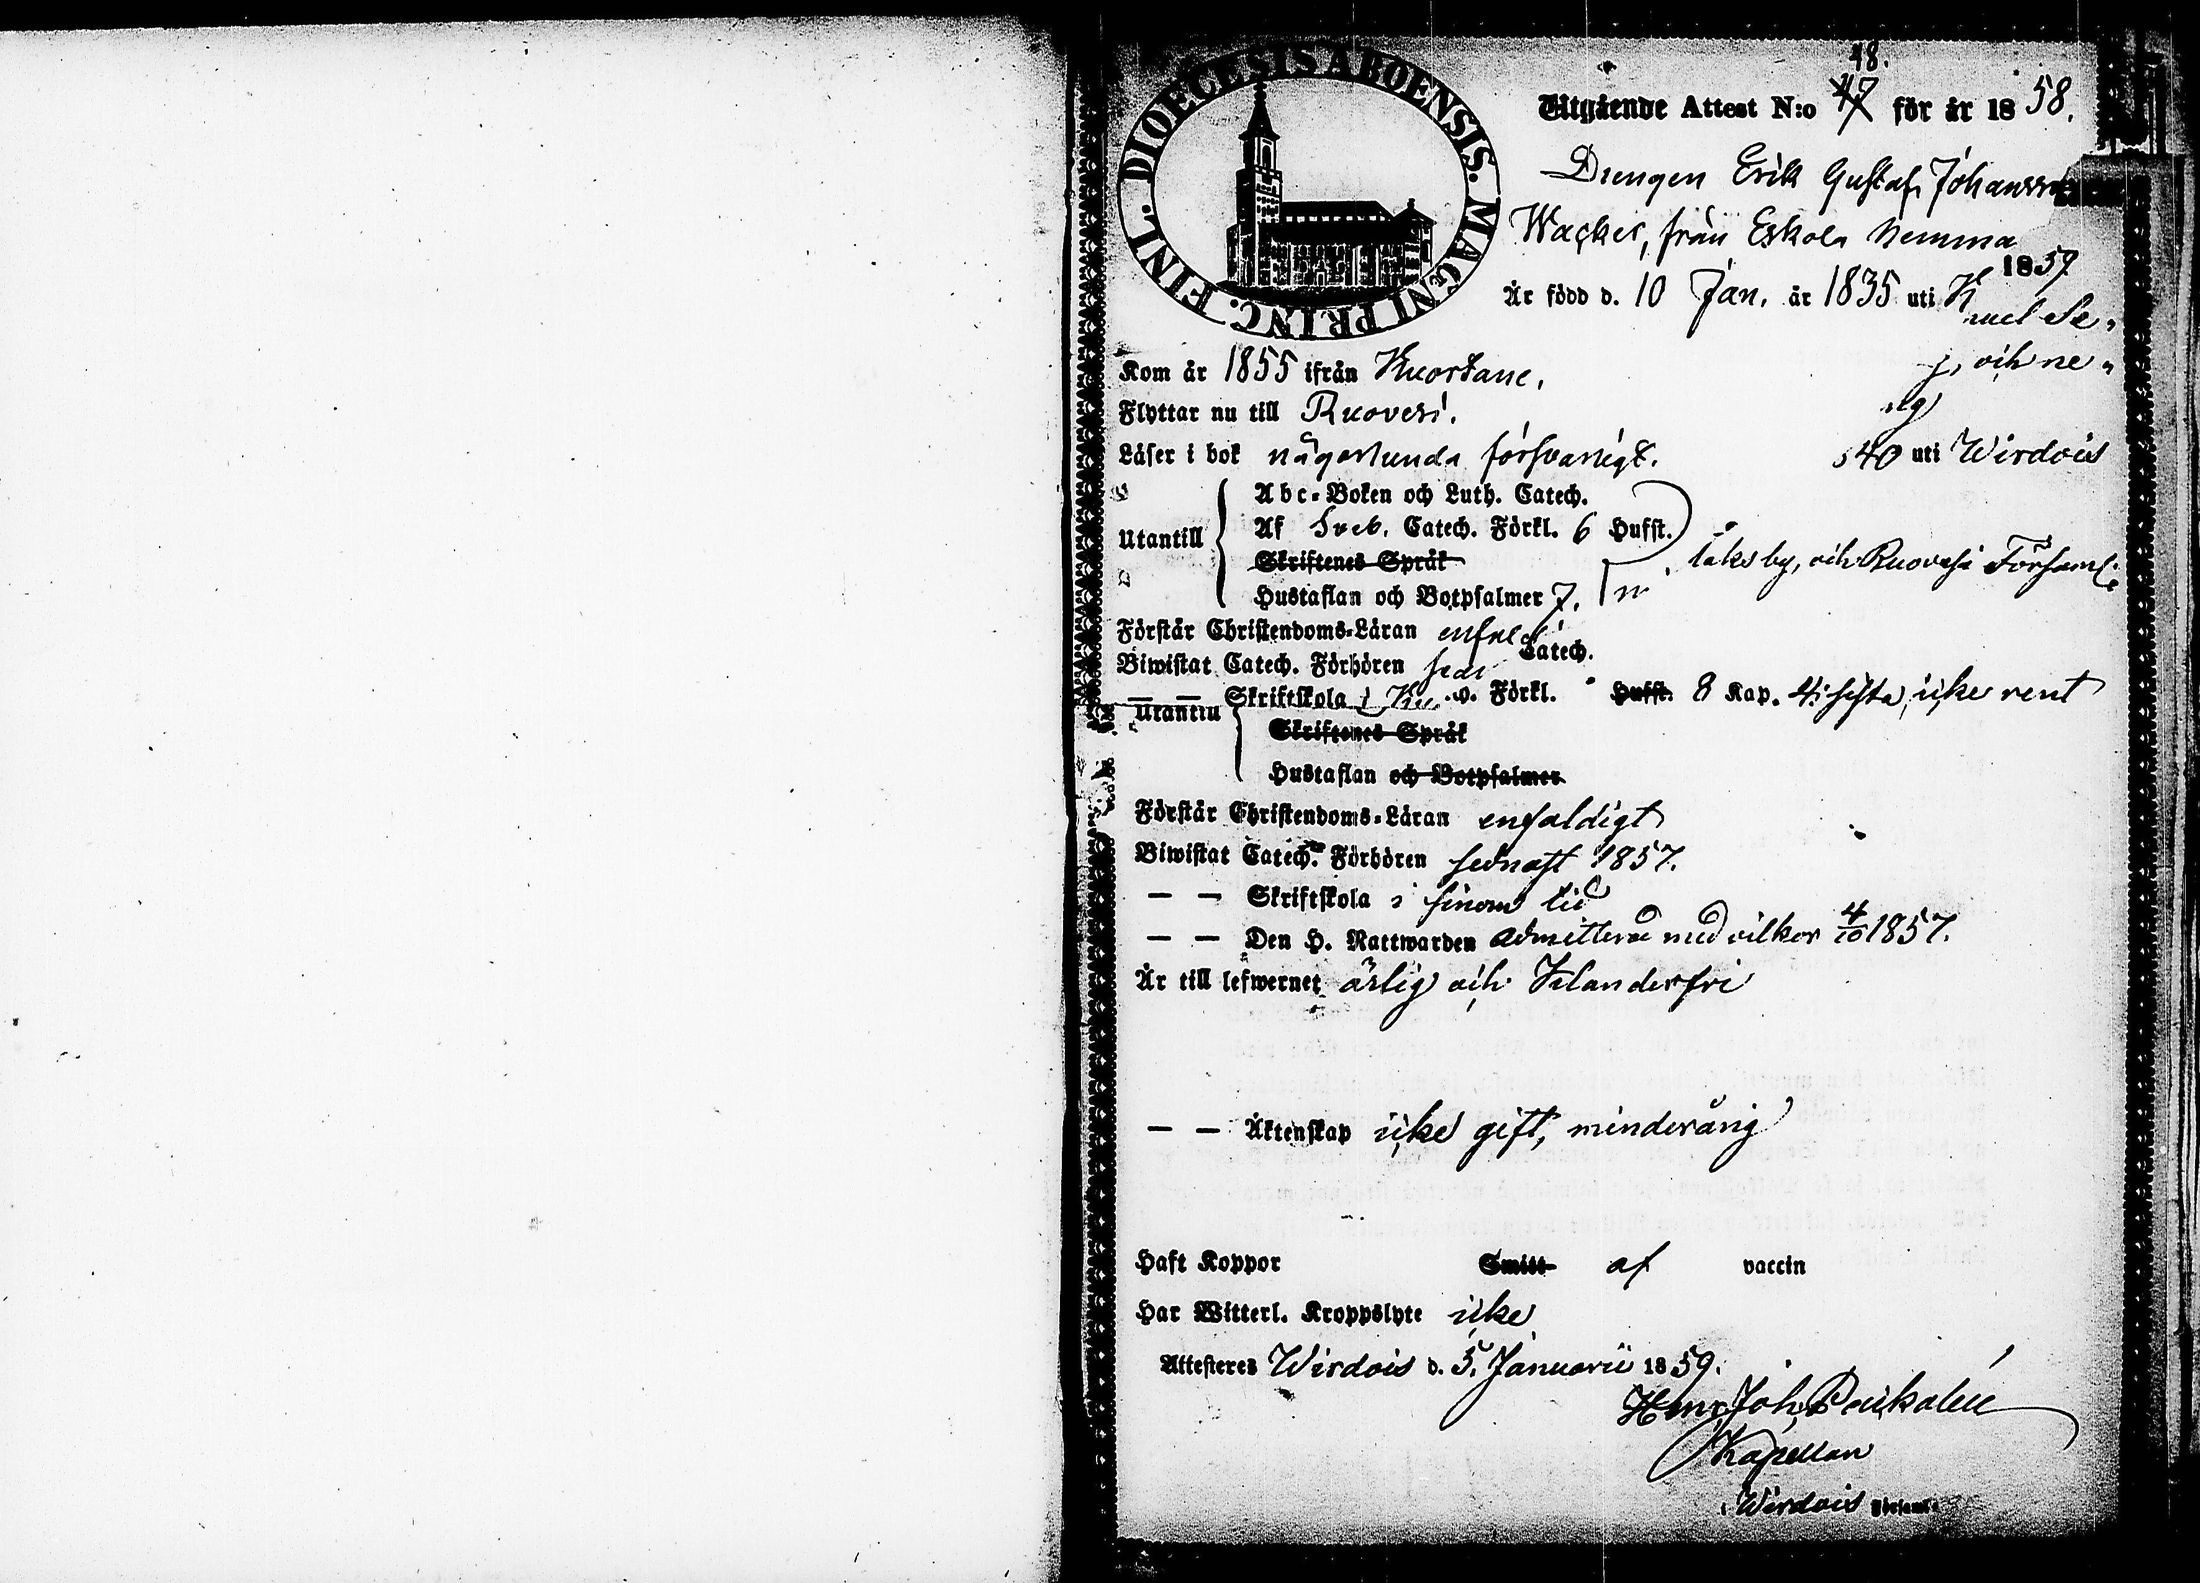 DIOECESIS ABOENSIS. MAGNI PRINC. FINL.
48.
Utgående Attest N:o 47 för år 1858.
Drengen Erik Gustaf Johansson
Wacker, från Eskola hemma
1859
Är född d. 10 Jan. år 1835 uti K
Kom år 1855 ifrån Kuortane.
och ne„
Flyttar nu till Ruovesi.
Läser i bok någorlunda försvarligt.
540 uti Wirdois
Utantill
Abc-Boken och Luth. Catech.
Af Sveb. Catech. Förkl. 6 Hufst.
Skriftenes Språk
by, och Ruovesi Församl.
Hustaflan och Botpsalmer 7.
Förstår Christendoms-Läran enfald
Catech.
Biwistat Catech. Förhören
— — Skriftskola i
Förkl. Hufst. 8 Kap. 4: sista icke rent
Utantill
Skriftenes Språk
Hustaflan och Botpsalmer
Förstår Christendoms-Läran enfaldigt
Biwistat Catech. Förhören sednast 1857.
— — Skriftskola i sinom tid
— — Den H. Nattwarden admitterad med vilkor 4/10 1857.
Är till lefwernet ärlig och klanderfri
— — Äktenskap icke gift, minderårig
Haft Koppor Smitt af vaccin
Har Witterl. Kroppslyte icke
Attesteres Wirdois d. 5. Januarii 1859.
Henr. Joh.
Kapellan
i Wirdois Församl.